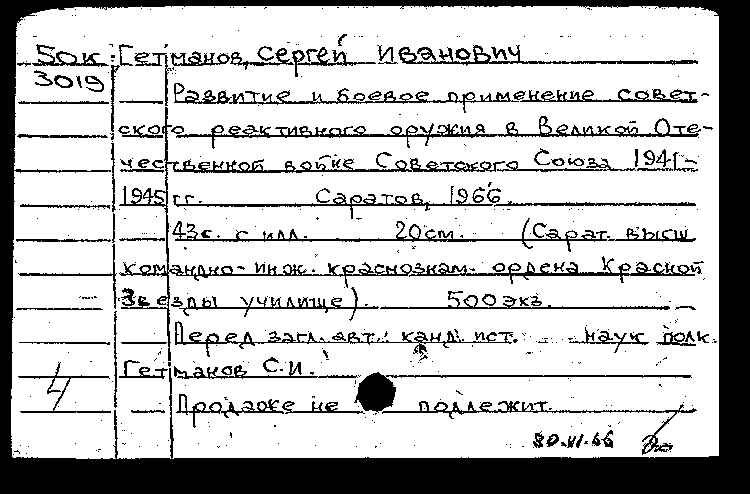 50к Гетманов, Сергей Иванович
3019
Развитие и боевое применение совет-
ского реактивного оружия в Великой Оте-
чественной войне Советского Союза 1941-
1945 гг. Саратов, 1966.
43с. с илл. 20см. (Сарат. высш
командно-инж. краснознам. ордена Красной
Звезды училище). 500 экз.
Перед загл. авт.: канд. ист. наук полк.
Гетманов С.И.
4
Продаже не подлежит.
30.VI.66